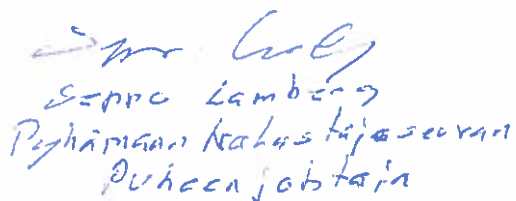 Seppo Lamberg
Pyhämaan Kalastajaseuran
Puheenjohtaja